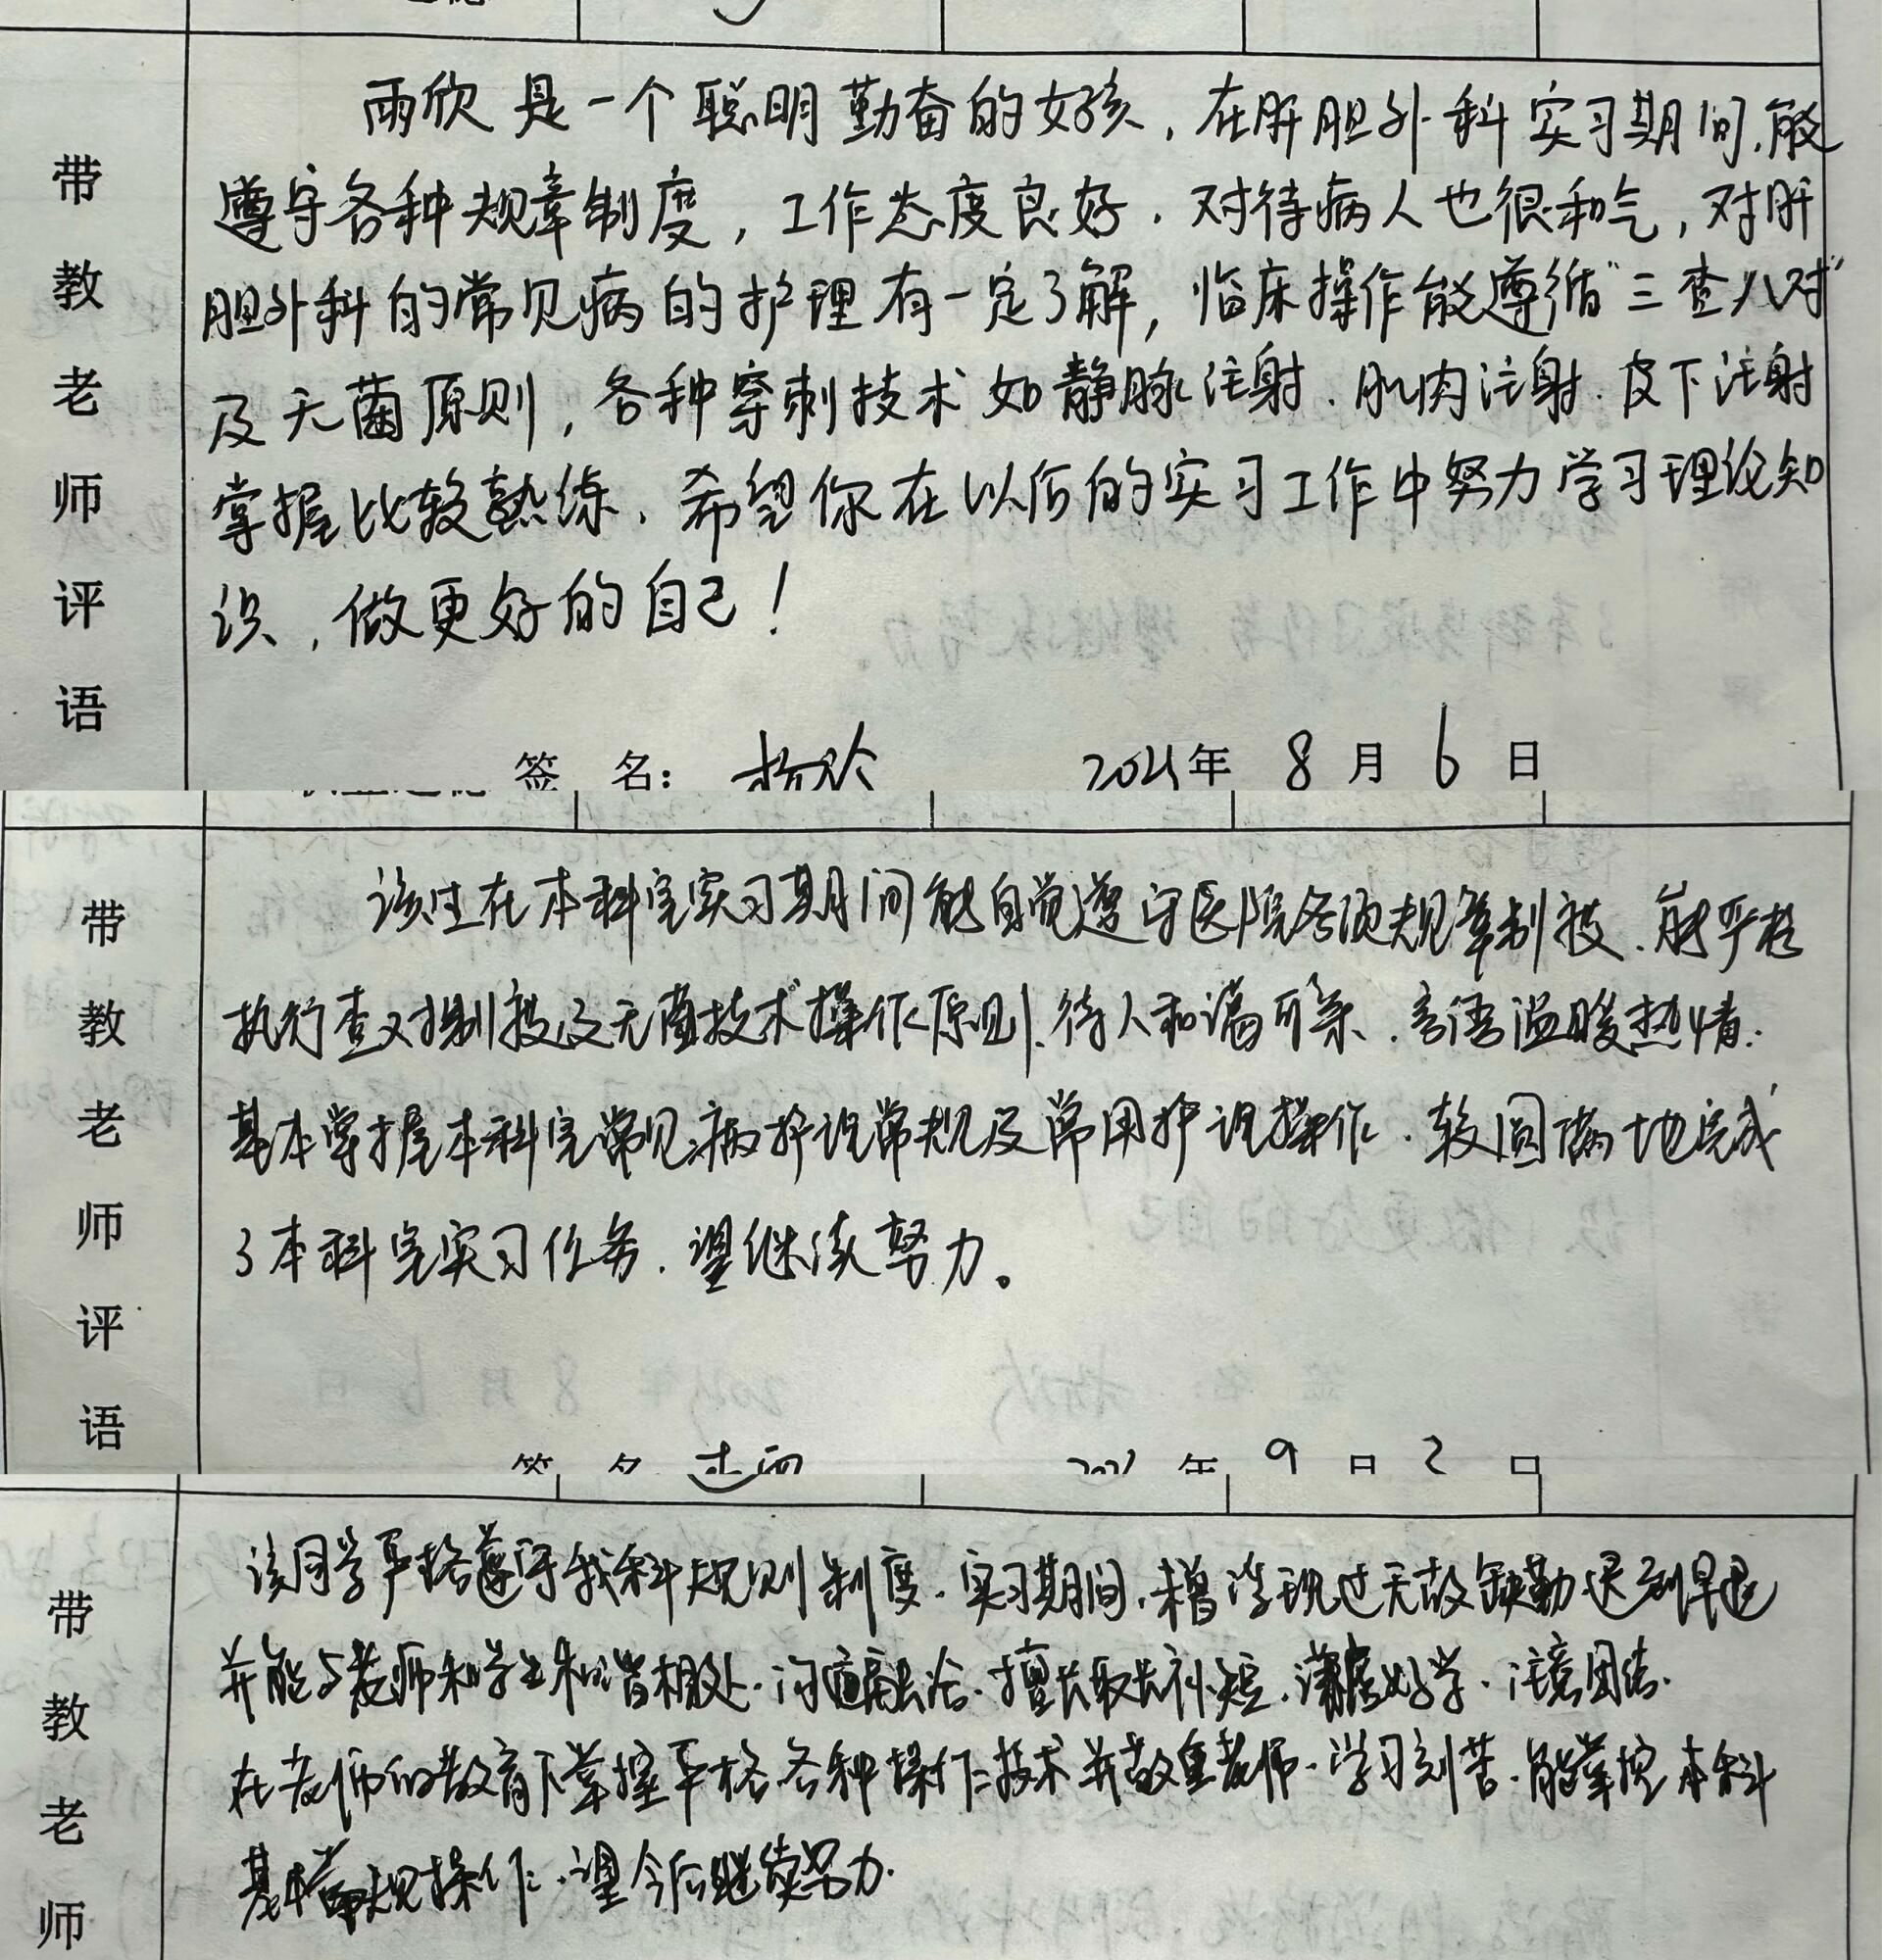 带教老师评语
雨欣是一个聪明勤奋的女孩，在肝胆外科实习期间，能
遵守各种规章制度，工作态度良好，对待病人也很和气，对肝
胆外科的常见病的护理有一定了解，临床操作能遵循“三查八对”
及无菌原则，各种穿刺技术如静脉注射、肌肉注射、皮下注射
掌握比较熟练，希望你在以后的实习工作中努力学习理论知
识，做更好的自己！
签 名： 2021年 8 月 6 日
带教老师评语
该生在本科室实习期间能自觉遵守医院各项规章制度，能严格
执行查对制度及无菌技术操作原则，待人和蔼可亲，言语温暖热情.
基本掌握本科室常见病护理常规及常用护理操作，较圆满地完成
了本科室实习任务，望继续努力。
签 名 2021 年 9 月 2 日
带教老师
该同学严格遵守我科规则制度，实习期间，未曾出现过无故缺勤迟到早退
并能与老师和学生和谐相处，沟通融洽，擅长取长补短，谦虚好学，注意团结.
在老师的教育下掌握严格各种操作技术并敬重老师，学习刻苦，能掌握本科
基本常规操作，望今后继续努力.